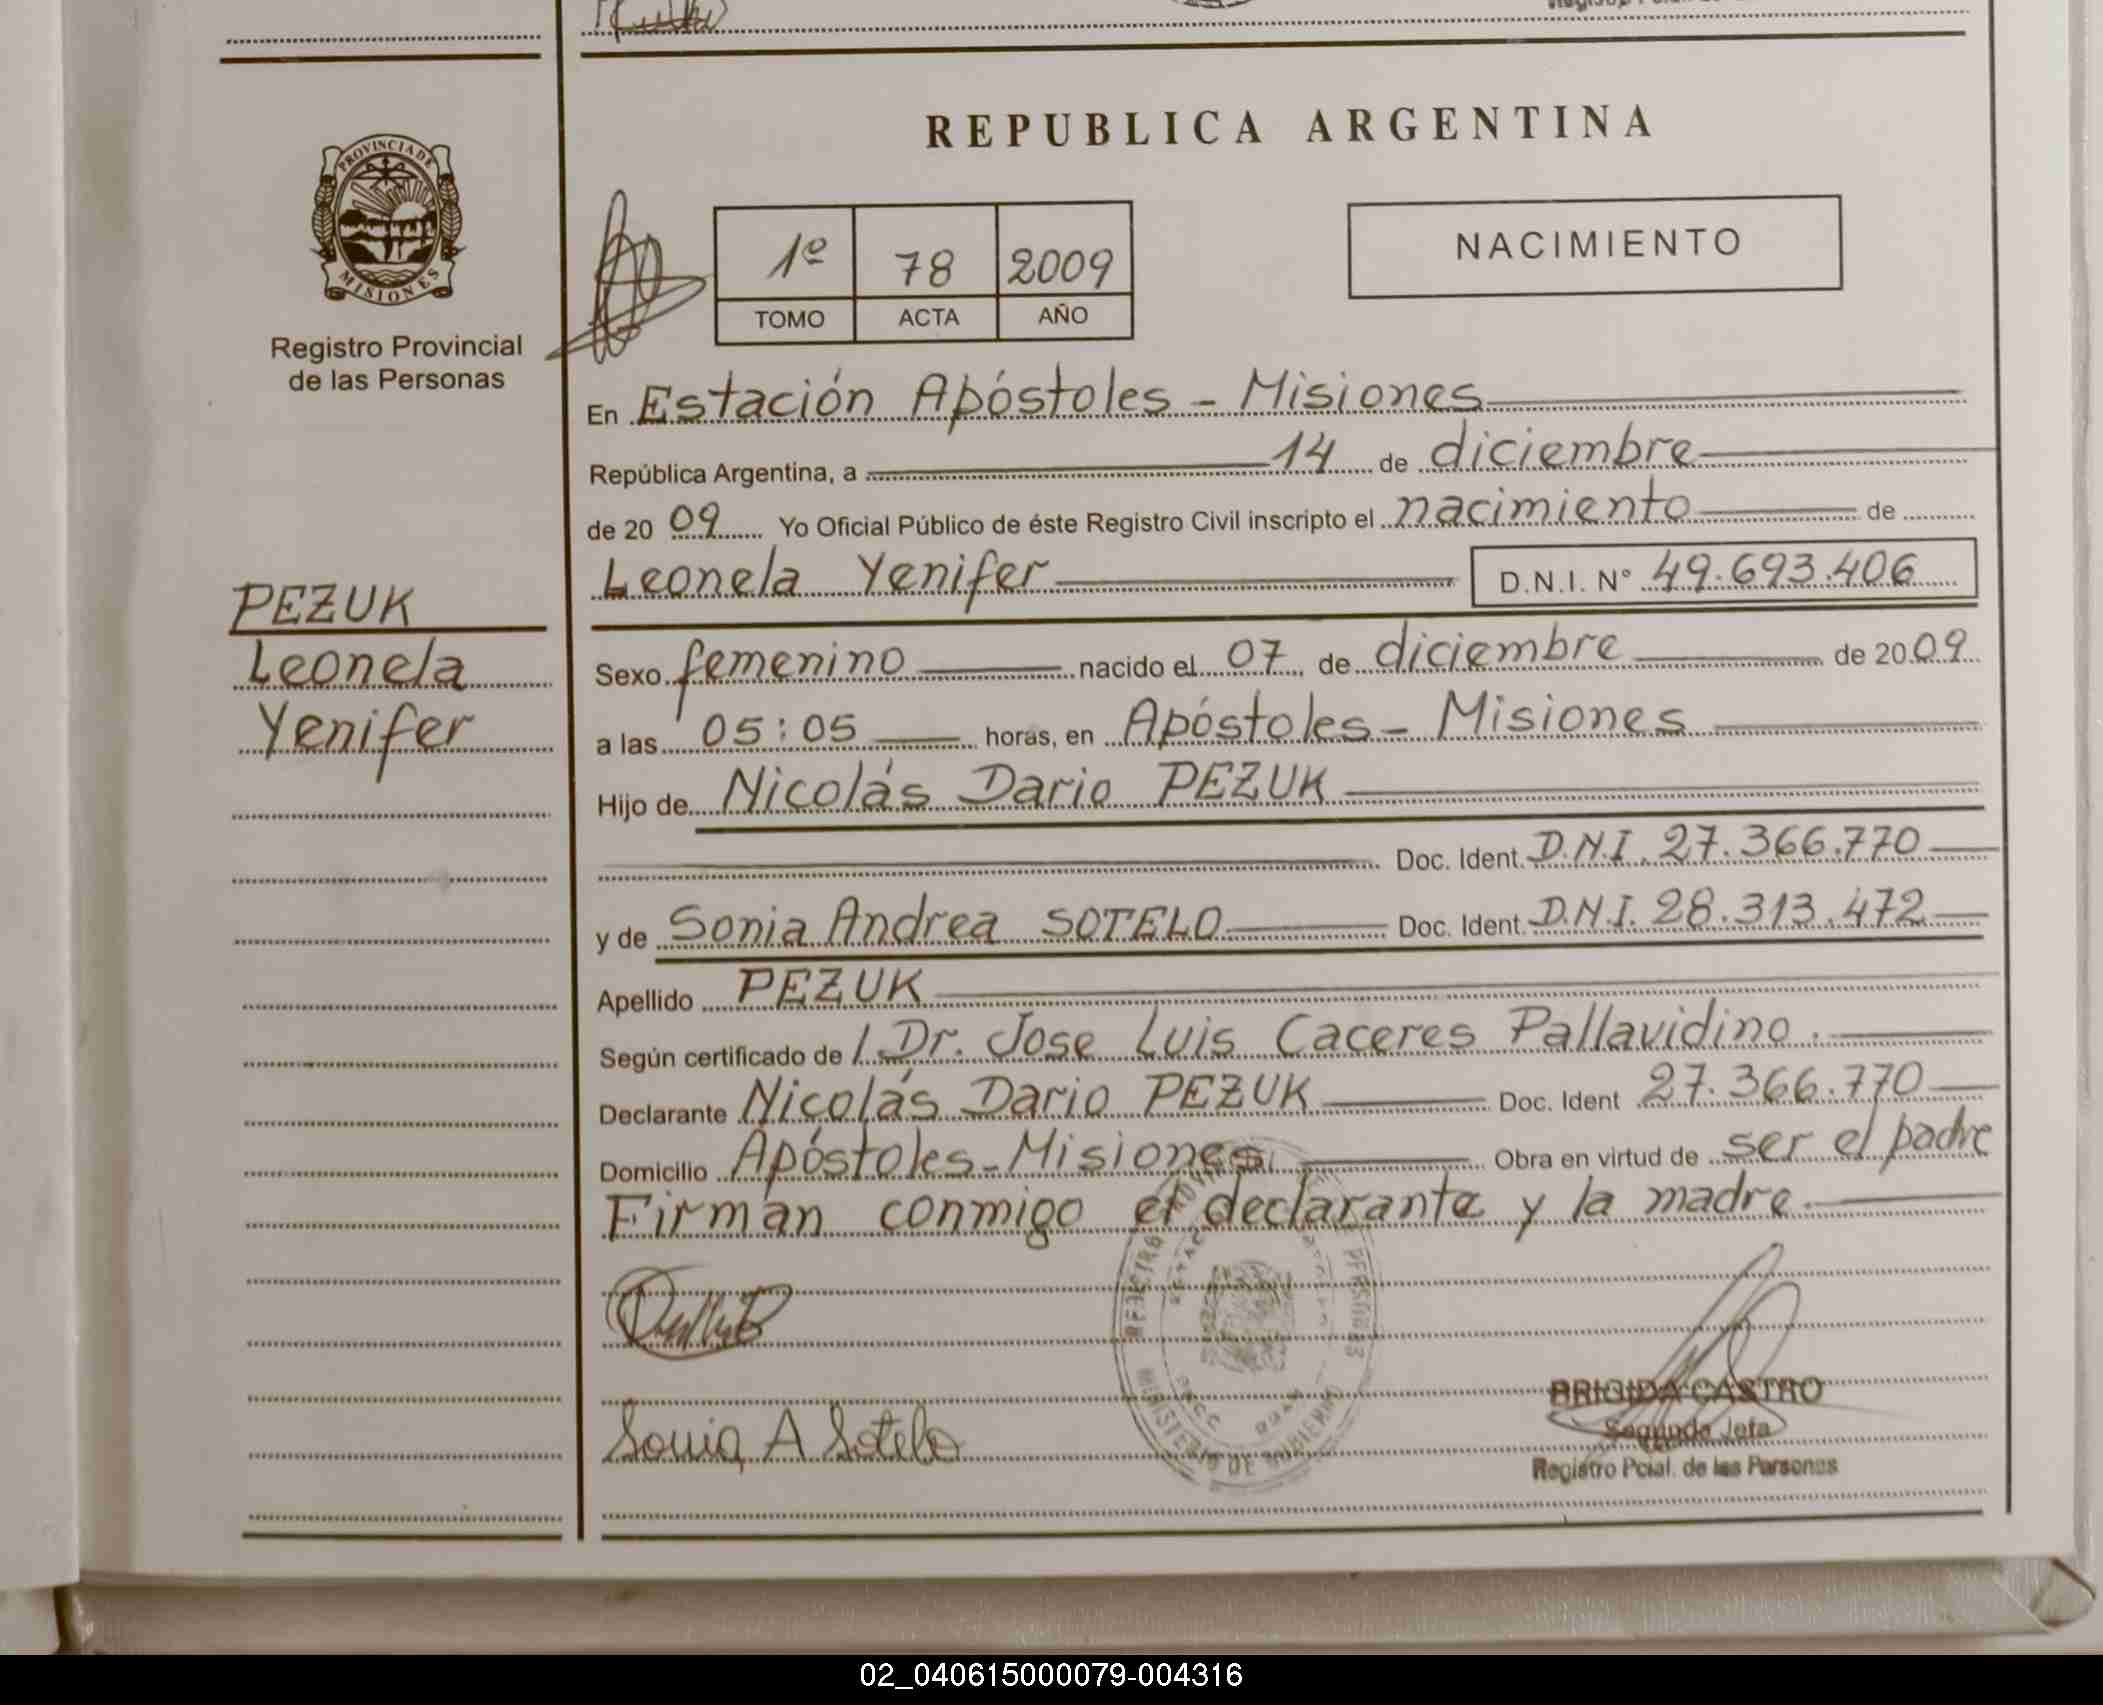 REPUBLICA ARGENTINA
PROVINCIA DE
MISIONES
Registro Provincial
de las Personas
1º 78 2009
TOMO ACTA AÑO
NACIMIENTO
En Estación Apóstoles - Misiones
República Argentina, a 14 de diciembre
de 20 09 Yo Oficial Público de éste Registro Civil inscripto el nacimiento de
Leonela Yenifer D.N.I. Nº 49.693.406
PEZUK
Leonela
Yenifer
Sexo femenino nacido el 07 de diciembre de 2009
a las 05:05 horas, en Apóstoles - Misiones
Hijo de Nicolás Dario PEZUK
Doc. Ident. D.N.I. 27.366.770
y de Sonia Andrea SOTELO Doc. Ident. D.N.I. 28.313.472
Apellido PEZUK
Según certificado de / Dr. Jose Luis Caceres Pallavidino.
Declarante Nicolás Dario PEZUK Doc. Ident 27.366.770
Domicilio Apóstoles - Misiones Obra en virtud de ser el padre
Firman conmigo el declarante y la madre.
MINISTERIO DE GOBIERNO
Sonia A Sotelo
BRIGIDA CASTRO
Segunda Jefa
Registro Pcial. de las Personas
02_040615000079-004316